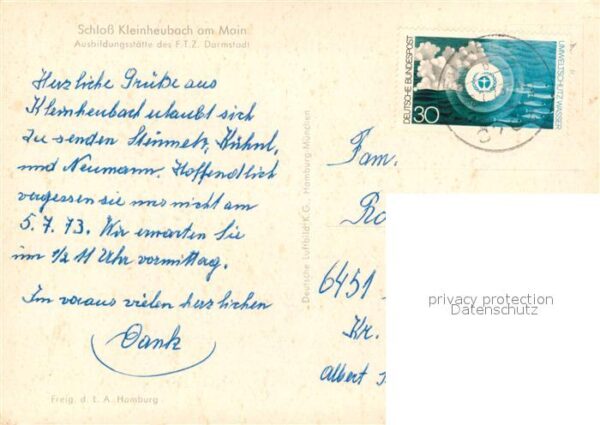 Schloß Kleinheubach am Main
Ausbildungsstätte des F.T.Z. Darmstadt
Herzliche Grüße aus
Kleinheubach erlaubt sich
zu senden Steinmetz, Kühnl,
und Neumann. Hoffendlich
vergessen sie uns nicht am
5.7.73. Wir erwarten Sie
um 1/2 11 Uhr vormittag.
Im voraus vielen herzlichen
Dank
Freig. d. L.A. Hamburg
Deutsche Luftbild K.G., Hamburg-München
DEUTSCHE BUNDESPOST
30
UMWELTSCHUTZ: WASSER
Fam.
Ro
6451
Kr.
Albert
privacy protection
Datenschutz